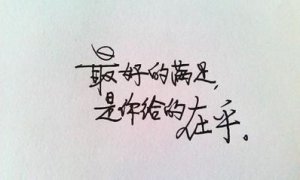 最好的满足,
是你给的在乎。